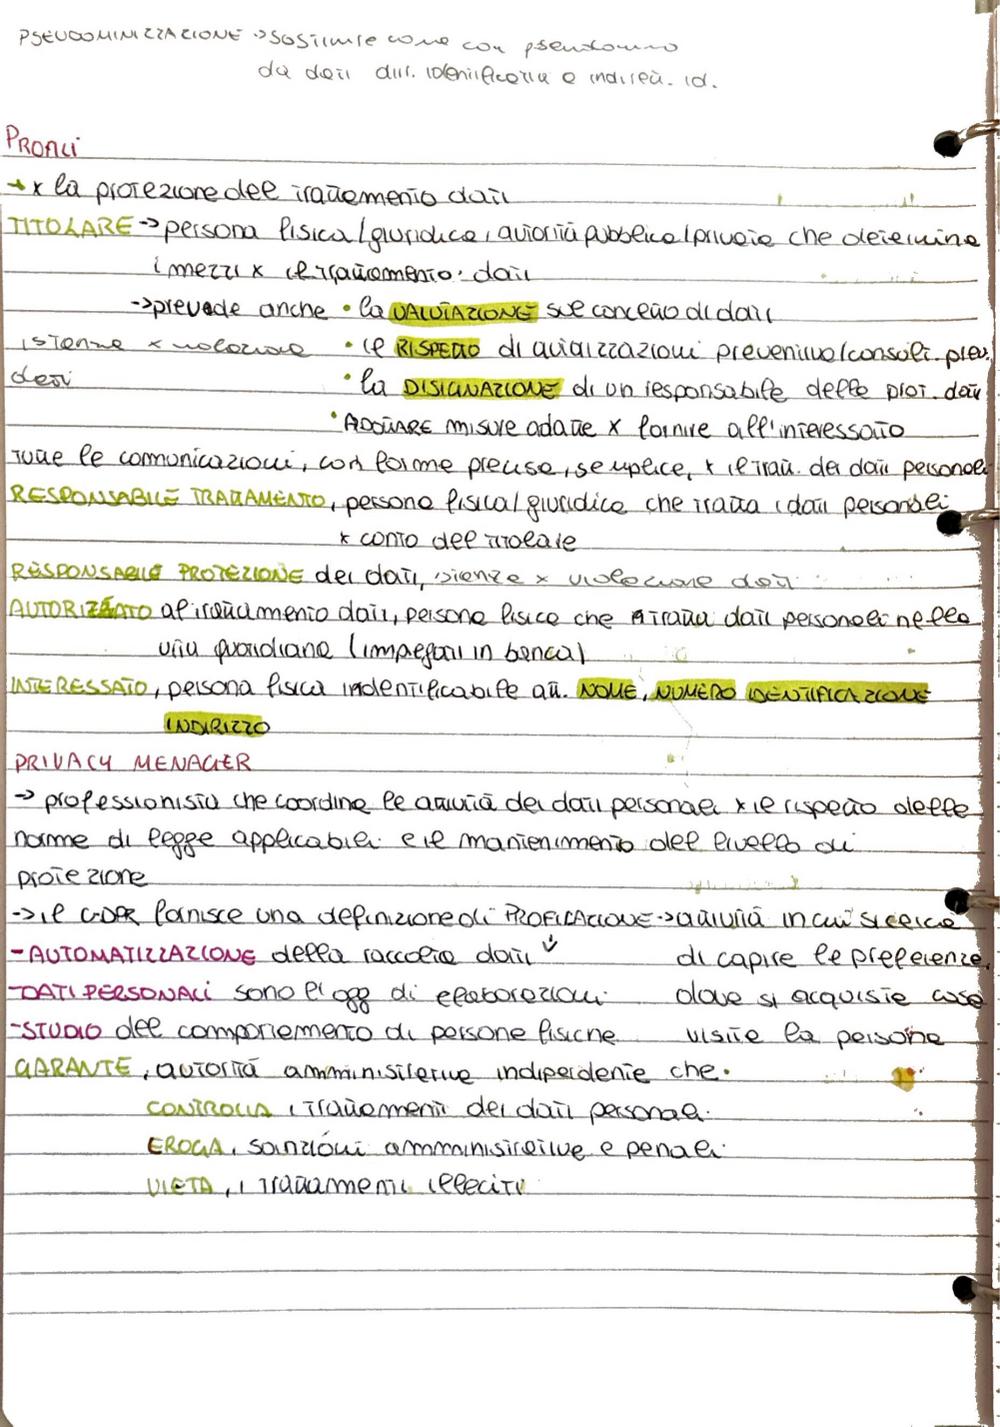 PSEUDOMINIZZAZIONE → sostituire come con pseudonimo
da dati dir. identificativi a indiret. id.
PROFILI
→ x la protezione del trattamento dati
TITOLARE → persona fisica/giuridica, autorità pubblica/privata che determina
i mezzi x il trattamento dati
→ prevede anche • la VALUTAZIONE sul concetto di dati
istanze x violazione • il RISPETTO di autorizzazioni preventive/consult. prev.
dati • la DISIGNAZIONE di un responsabile della prot. dati
• ADOTTARE misure adatte x fornire all'interessato
tutte le comunicazioni, con forme precise, semplice, x il tratt. dei dati personali
RESPONSABILE TRATTAMENTO, persona fisica/giuridica che tratta i dati personali
x conto del titolare
RESPONSABILE PROTEZIONE dei dati, istanze x violazione dati
AUTORIZZATO al trattamento dati, persona fisica che tratta dati personali nella
vita quotidiana (impiegati in banca)
INTERESSATO, persona fisica indentificabile att. NOME, NUMERO IDENTIFICAZIONE
INDIRIZZO
PRIVACY MENAGER
→ professionista che coordina le attività dei dati personali x il rispetto delle
norme di legge applicabili e il mantenimento del livello di
protezione
→ il GDPR fornisce una definizione di PROFILAZIONE → attività in cui si cerca
- AUTOMATIZZAZIONE della raccolta dati ↓ di capire le preferenze,
- DATI PERSONALI sono l'ogg di elaborazioni dove si acquista cosa
- STUDIO del comportamento di persone fisiche visita la persona
GARANTE, autorità amministrativa indipendente che:
CONTROLLA i trattamenti dei dati personali
EROGA, sanzioni amministrative e penali
VIETA, i trattamenti illeciti